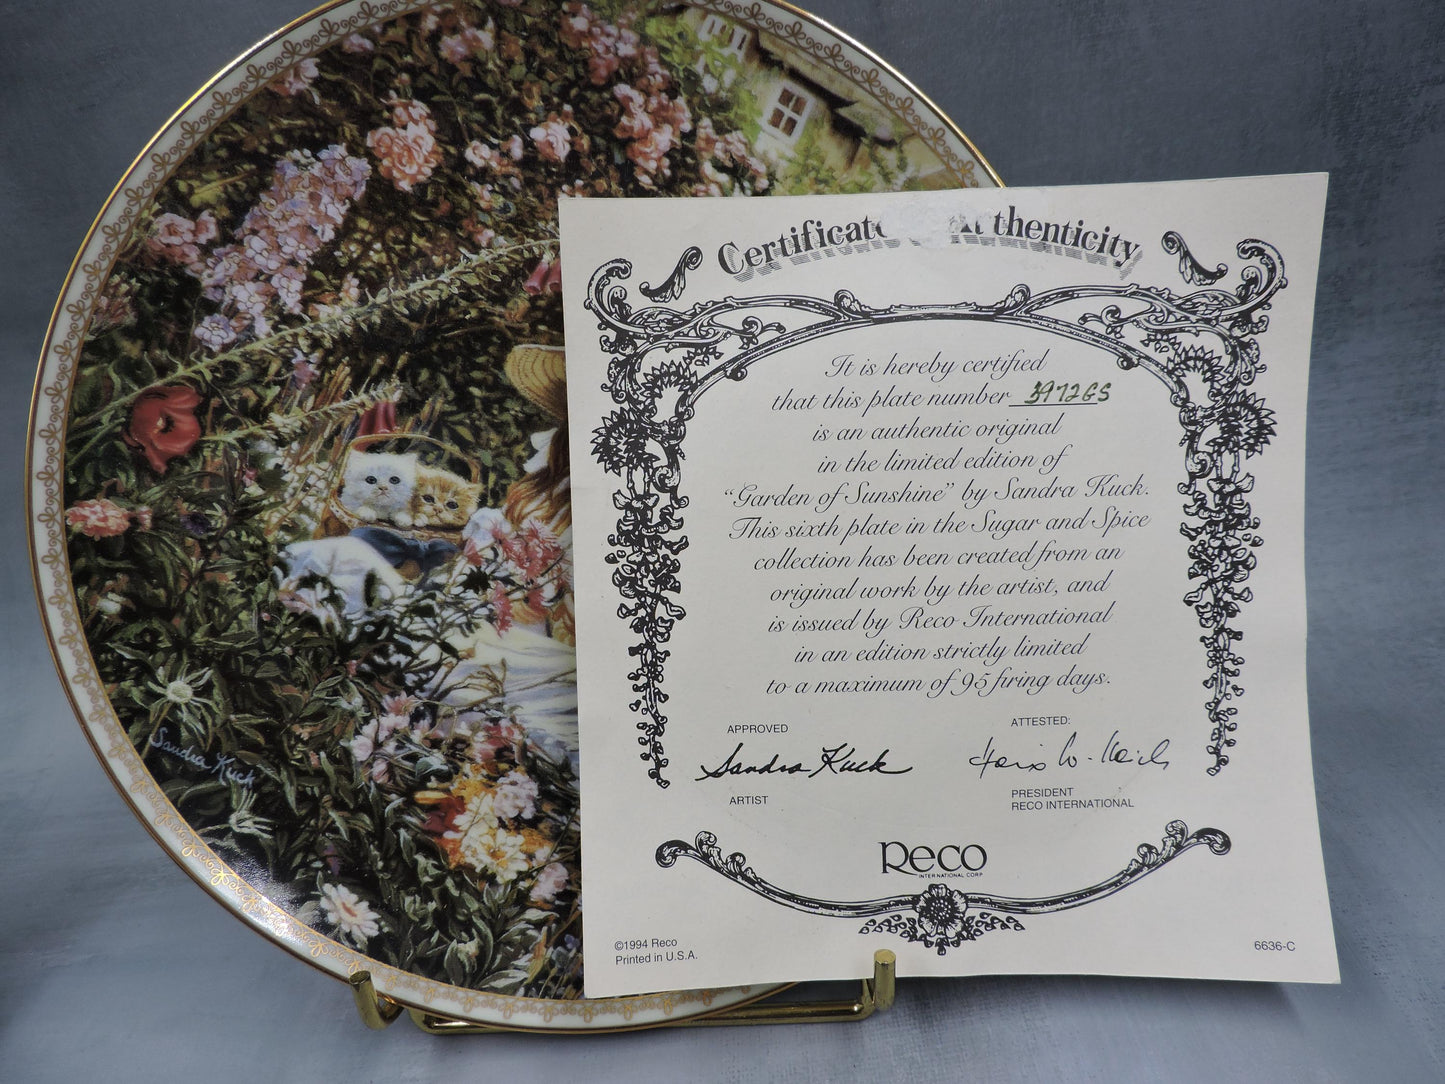 Certificate thenticity
It is hereby certified
that this plate number 3972GS
is an authentic original
in the limited edition of
"Garden of Sunshine" by Sandra Kuck.
This sixth plate in the Sugar and Spice
collection has been created from an
original work by the artist, and
is issued by Reco International
in an edition strictly limited
to a maximum of 95 firing days.
APPROVED
Sandra Kuck
ARTIST
ATTESTED:
PRESIDENT
RECO INTERNATIONAL
Reco
INTERNATIONAL CORP.
©1994 Reco
Printed in U.S.A.
6636-C
Sandra Kuck